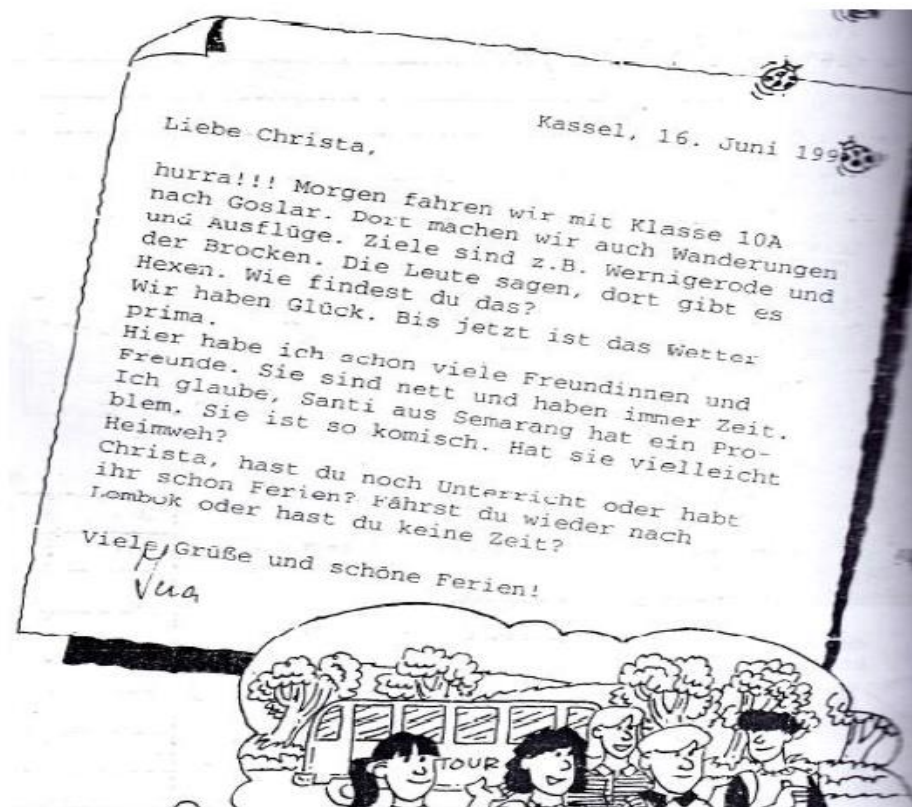 Kassel, 16. Juni 199
Liebe Christa,
hurra!!! Morgen fahren wir mit Klasse 10A
nach Goslar. Dort machen wir auch Wanderungen
und Ausflüge. Ziele sind z.B. Wernigerode und
der Brocken. Die Leute sagen, dort gibt es
Hexen. Wie findest du das?
Wir haben Glück. Bis jetzt ist das Wetter
prima.
Hier habe ich schon viele Freundinnen und
Freunde. Sie sind nett und haben immer Zeit.
Ich glaube, Santi aus Semarang hat ein Pro-
blem. Sie ist so komisch. Hat sie vielleicht
Heimweh?
Christa, hast du noch Unterricht oder habt
ihr schon Ferien? Fährst du wieder nach
Lombok oder hast du keine Zeit?
Viele Grüße und schöne Ferien!
Vera
TOUR